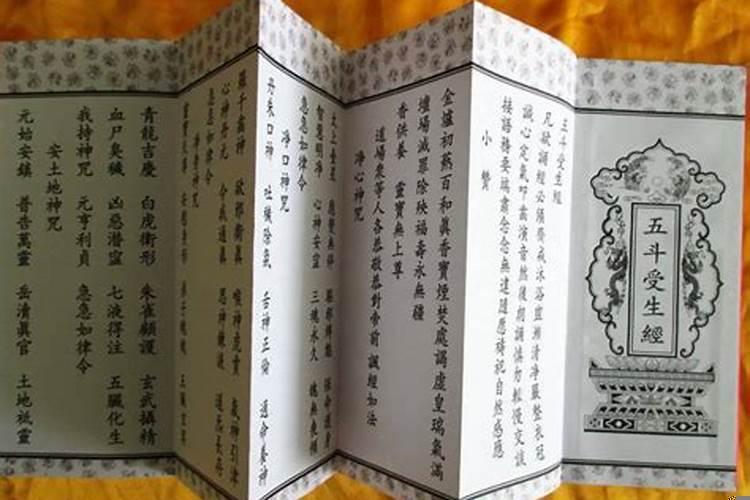 五斗受生經
五斗受生經
凡欲誦經必須齋戒沐浴
誠心定氣叩齒演音然後朗誦慎勿輕慢交談
接語務要端肅念念無違隨願禱祀自然感應
小贊
金爐初爇百和真香寶煙焚處謁虛皇瑞氣滿
壇場滅罪除殃福壽永無疆
香供養 靈寶無上尊
道場眾等人各恭敬恭對帝前 誦經如法
淨心神咒
太上台星 應變無停
智慧明淨 心神安寧 三魂永久 魄無喪傾
急急如律令
淨口神咒
丹朱口神 吐穢除氛 舌神正倫 通命養神
羅千齒神 卻邪衛真 喉神虎賁 氣神引津
心神丹元 令我通真 思神鍊液 道炁長存
急急如律令
淨身神咒
青龍吉慶 白虎衛形 朱雀頤護 玄武攝精
血尸臭穢 凶惡潛寧 七液得注 五臟化生
我持神咒 元亨利貞 急急如律令
安土地神咒
元始安鎮 普告萬靈 岳瀆真官 土地祗靈